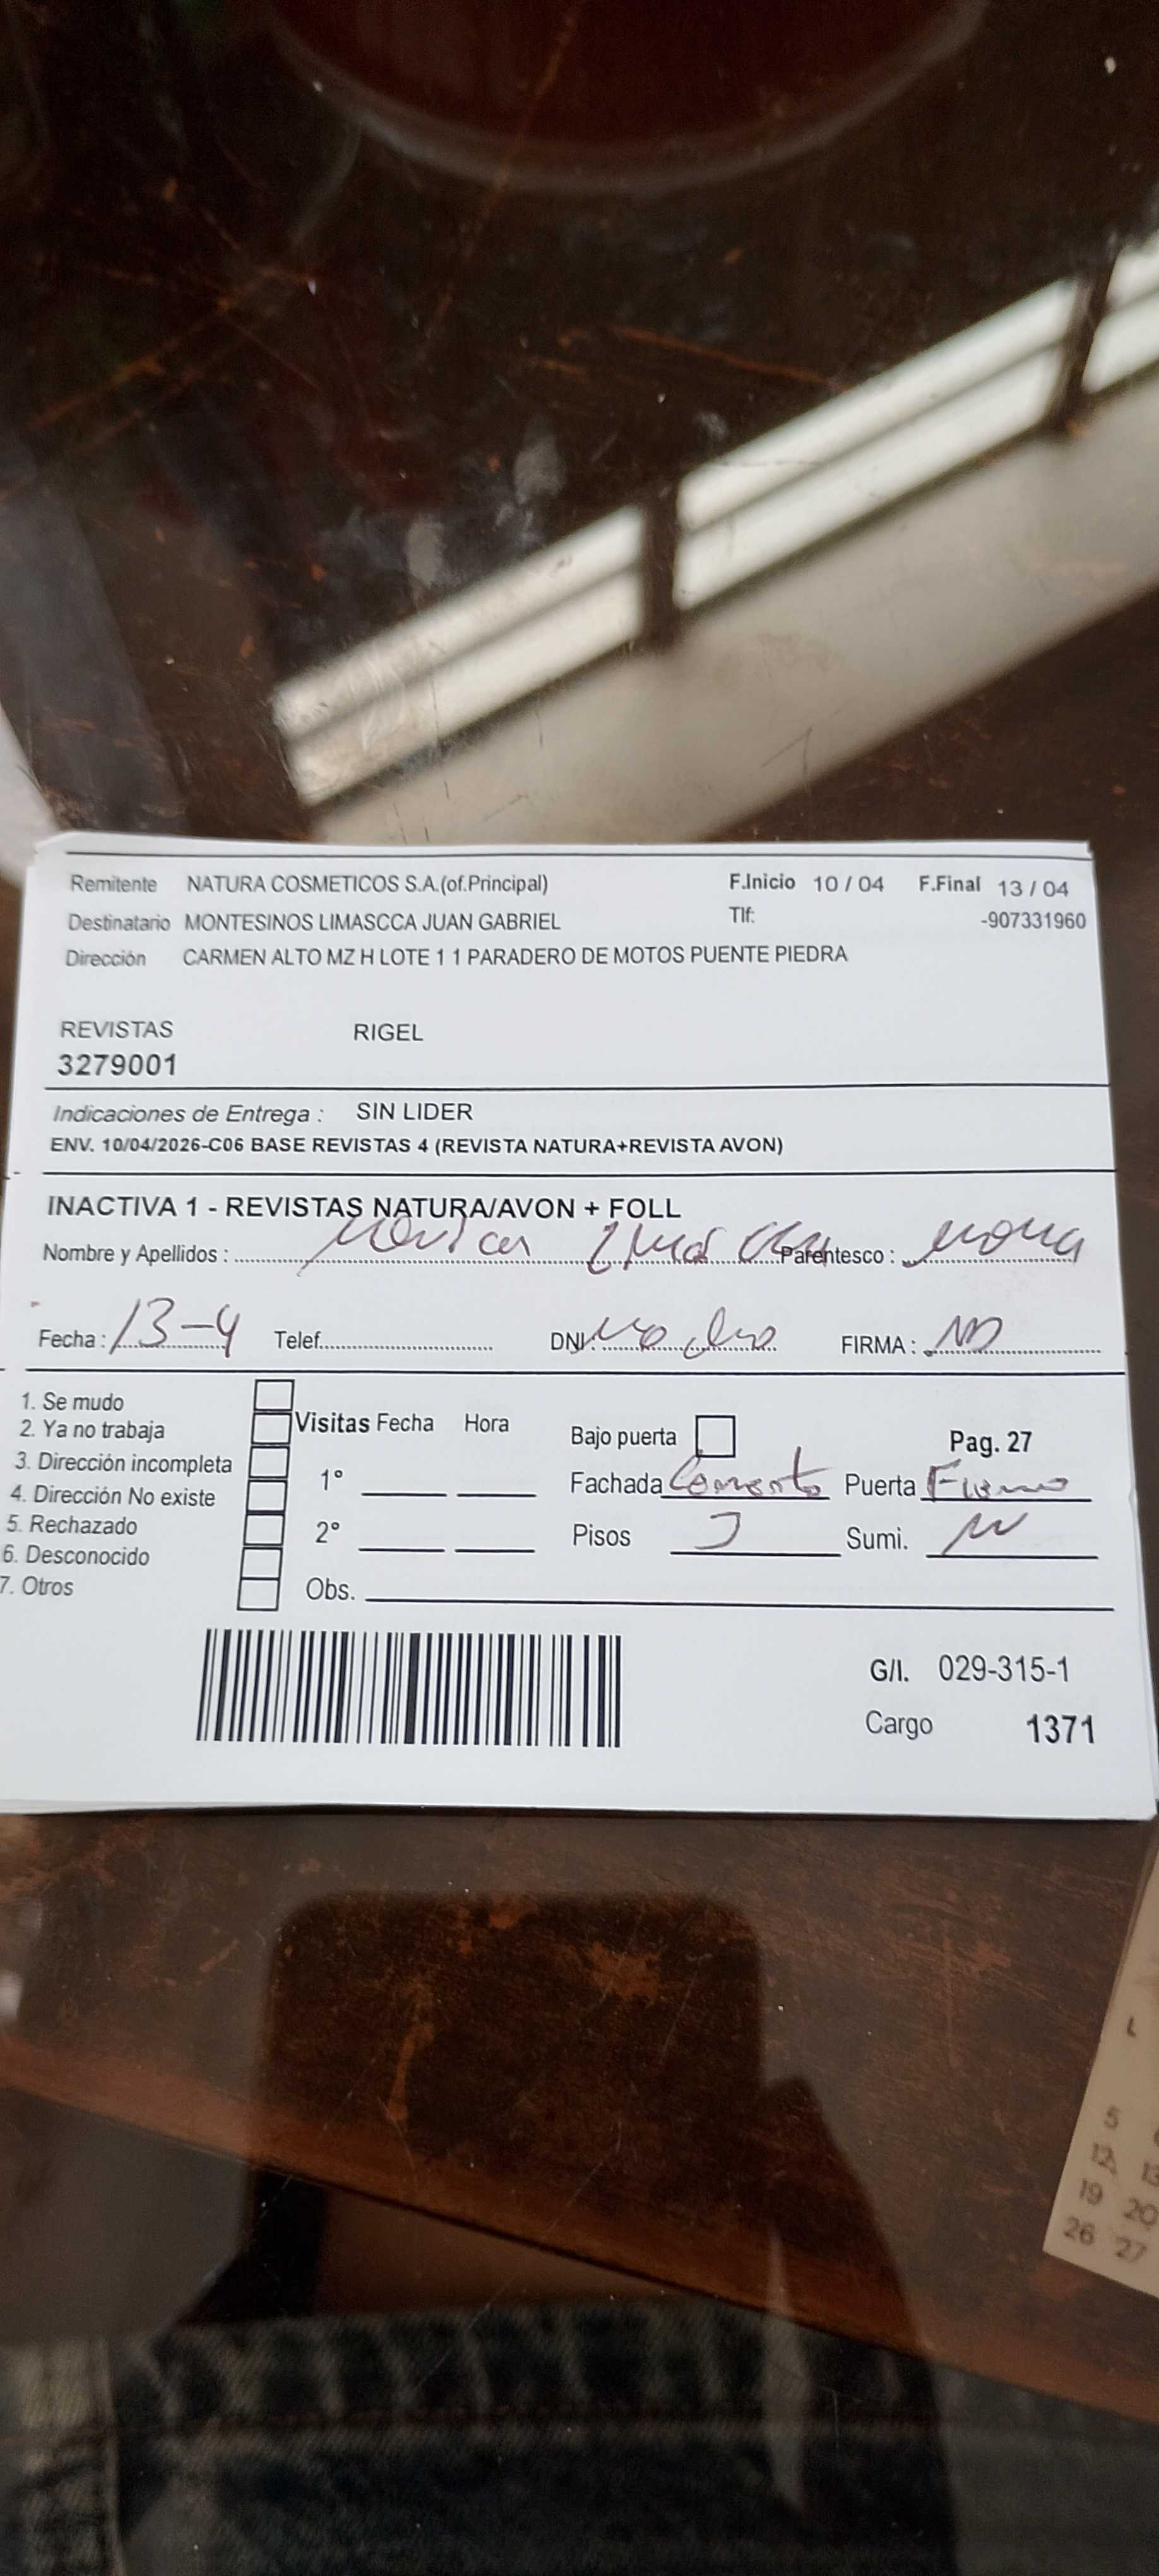 Remitente NATURA COSMETICOS S.A.(of.Principal) F.Inicio 10 / 04 F.Final 13 / 04
Destinatario MONTESINOS LIMASCCA JUAN GABRIEL Tlf: -907331960
Dirección CARMEN ALTO MZ H LOTE 1 1 PARADERO DE MOTOS PUENTE PIEDRA
REVISTAS RIGEL
3279001
Indicaciones de Entrega : SIN LIDER
ENV. 10/04/2026-C06 BASE REVISTAS 4 (REVISTA NATURA+REVISTA AVON)
INACTIVA 1 - REVISTAS NATURA/AVON + FOLL
Nombre y Apellidos : Parentesco :
Fecha : 13-4 Telef. DNI: FIRMA :
1. Se mudo
2. Ya no trabaja
3. Dirección incompleta
4. Dirección No existe
5. Rechazado
6. Desconocido
7. Otros
Visitas Fecha Hora
1°
2°
Obs.
Bajo puerta Pag. 27
Fachada Cemento Puerta Fierro
Pisos Sumi.
G/I. 029-315-1
Cargo 1371
L
5
12 13
19 20
26 27